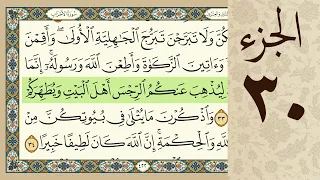 كُنَّ وَلَا تَبَرَّجْنَ تَبَرُّجَ ٱلْجَـٰهِلِيَّةِ ٱلْأُولَىٰ ۖ وَأَقِمْنَ
وَءَاتِينَ ٱلزَّكَوٰةَ وَأَطِعْنَ ٱللَّهَ وَرَسُولَهُۥٓ ۚ إِنَّمَا
لِيُذْهِبَ عَنكُمُ ٱلرِّجْسَ أَهْلَ ٱلْبَيْتِ وَيُطَهِّرَكُمْ
٣٣ وَٱذْكُرْنَ مَا يُتْلَىٰ فِى بُيُوتِكُنَّ مِنْ
ٱللَّهِ وَٱلْحِكْمَةِ ۚ إِنَّ ٱللَّهَ كَانَ لَطِيفًا خَبِيرًا ٣٤
٤٢٢
الجزء
٣٠